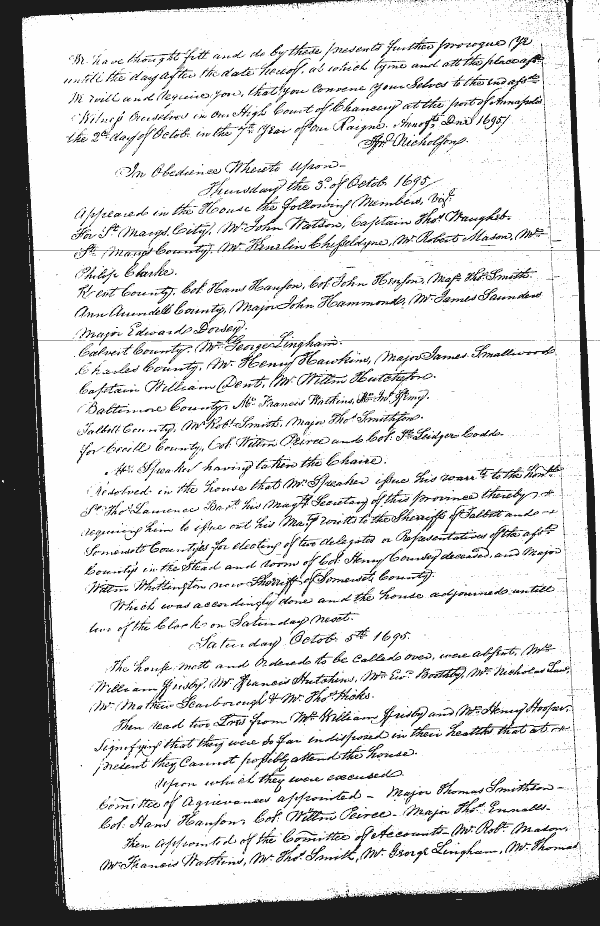 We have thought fitt and do by these presents further prorogue ye
untill the day after the date hereof, at which tyme and att the place afsd
We will and require you, that you Convene your Selves to the end afsd
Witness ourselves in our High Court of Chancery at the port of Annapolis
the 2d day of Octobr in the 7th Year of our Raigne Annoqe Dni 1695/
Nicholson
In Obedience Whereto upon
Thursday the 3d of Octob 1695/
Appeared in the House the following Members, Vizt
For St Marys City, Mr John Watson, Captain Thos Waughob.
St Marys County, Mr Kenelm Cheseldyne, Mr Robert Mason, Mr
Philip Clarke.
Kent County, Col Hans Hanson, Col John Hynson, Majr Thos Smith
Ann Arundell County, Major John Hammond, Mr James Saunders
Major Edward Dorsey.
Calvert County, Mr George Lingham.
Charles County, Mr Henry Hawkins, Major James Smallwood
Captain William Dent, Mr Willm Hutchison.
Baltimore County, Mr Francis Watkins,
Talbott County, Mr Robt Smith, Major Thos Smithson.
for Cecill County, Col Willm Peirce and Col. St Leidger Codd.
Mr Speaker having taken the Chaire.
Resolved in the house that Mr Speaker issue his warrt to the Honble
Sr Thos Laurence Bart his Matys Secretary of this province thereby
requiring him to issue out his Matys writts to the Sherriffs of Talbott and
Somersett Countys for electing of two delegates or Representatives of the afsd
County's in the stead and rooms of Col Henry Coursey deceased, and Major
Willm Whittington now Sherriff of Somersett County.
Which was accordingly done and the house adjourned untill
two of the Clock on Saturday next.
Saturday Octob 5th 1695.
The house mett and Ordered to be called over, were absent, Mr
William Frisby, Mr Francis Hutchins, Mr Boothby, Mr Nicholas
Mr Mathew Scarborough & Mr Thos Hicks.
Then read two Lres from Mr William Frisby and Mr Henry Hooper,
Signifying that they were so far indisposed in their healths that at
present they Cannot possibly attend the house.
Upon which they were excused.
Comittee of Agrievances appointed - Major Thomas Smithson
Col. Hans Hanson, Col. Willm Peirce - Major Thos Ennalls.
Then appointed of the Comittee of Accounts Mr Robt Mason,
Mr Francis Watkins, Mr Thos Smith, Mr George Lingham, Mr Thomas